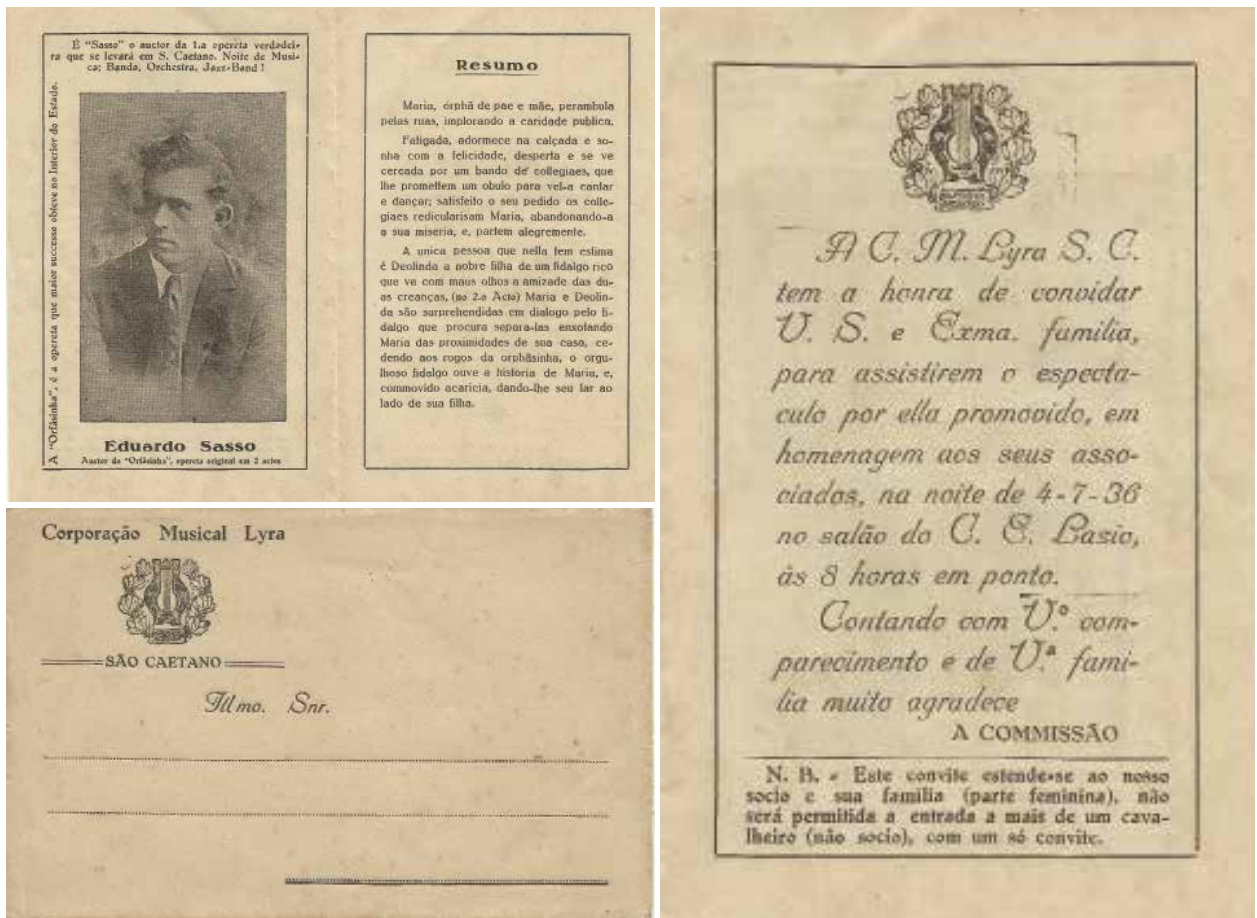 É "Sasso" o auctor da 1.a opereta verdadei-
ra que se levará em S. Caetano. Noite de Musi-
ca; Banda, Orchestra, Jazz-Band !
A "Orfãsinha", é a opereta que maior successo obteve no Interior do Estado.
Eduardo Sasso
Auctor da "Orfãsinha", opereta original em 2 actos
Resumo
Maria, orphã de pae e mãe, perambula
pelas ruas, implorando a caridade publica.
Fatigada, adormece na calçada e so-
nha com a felicidade, desperta e se ve
cercada por um bando de collegiaes, que
lhe promettem um obulo para vel-a cantar
e dançar; satisfeito o seu pedido os colle-
giaes redicularisam Maria, abandonando-a
a sua miseria, e, partem alegremente.
A unica pessoa que nella tem estima
é Deolinda a nobre filha de um fidalgo rico
que ve com maus olhos a amizade das du-
as creanças, (no 2.o Acto) Maria e Deolin-
da são surprehendidas em dialogo pelo fi-
dalgo que procura separa-las enxotando
Maria das proximidades de sua casa, ce-
dendo aos rogos da orphãsinha, o orgu-
lhoso fidalgo ouve a historia de Maria, e,
commovido acaricia, dando-lhe seu lar ao
lado de sua filha.
Corporação Musical Lyra
SÃO CAETANO
Illmo. Snr.
A C. M. Lyra S. C.
tem a honra de convidar
V. S. e Exma. familia,
para assistirem o especta-
culo por ella promovido, em
homenagem aos seus asso-
ciados, na noite de 4-7-36
no salão do C. E. Lasio,
ás 8 horas em ponto.
Contando com V.º com-
parecimento e de V.ª fami-
lia muito agradece
A COMMISSÃO
N. B. - Este convite estende-se ao nosso
socio e sua familia (parte feminina), não
será permitida a entrada a mais de um cava-
lheiro (não socio), com um só convite.